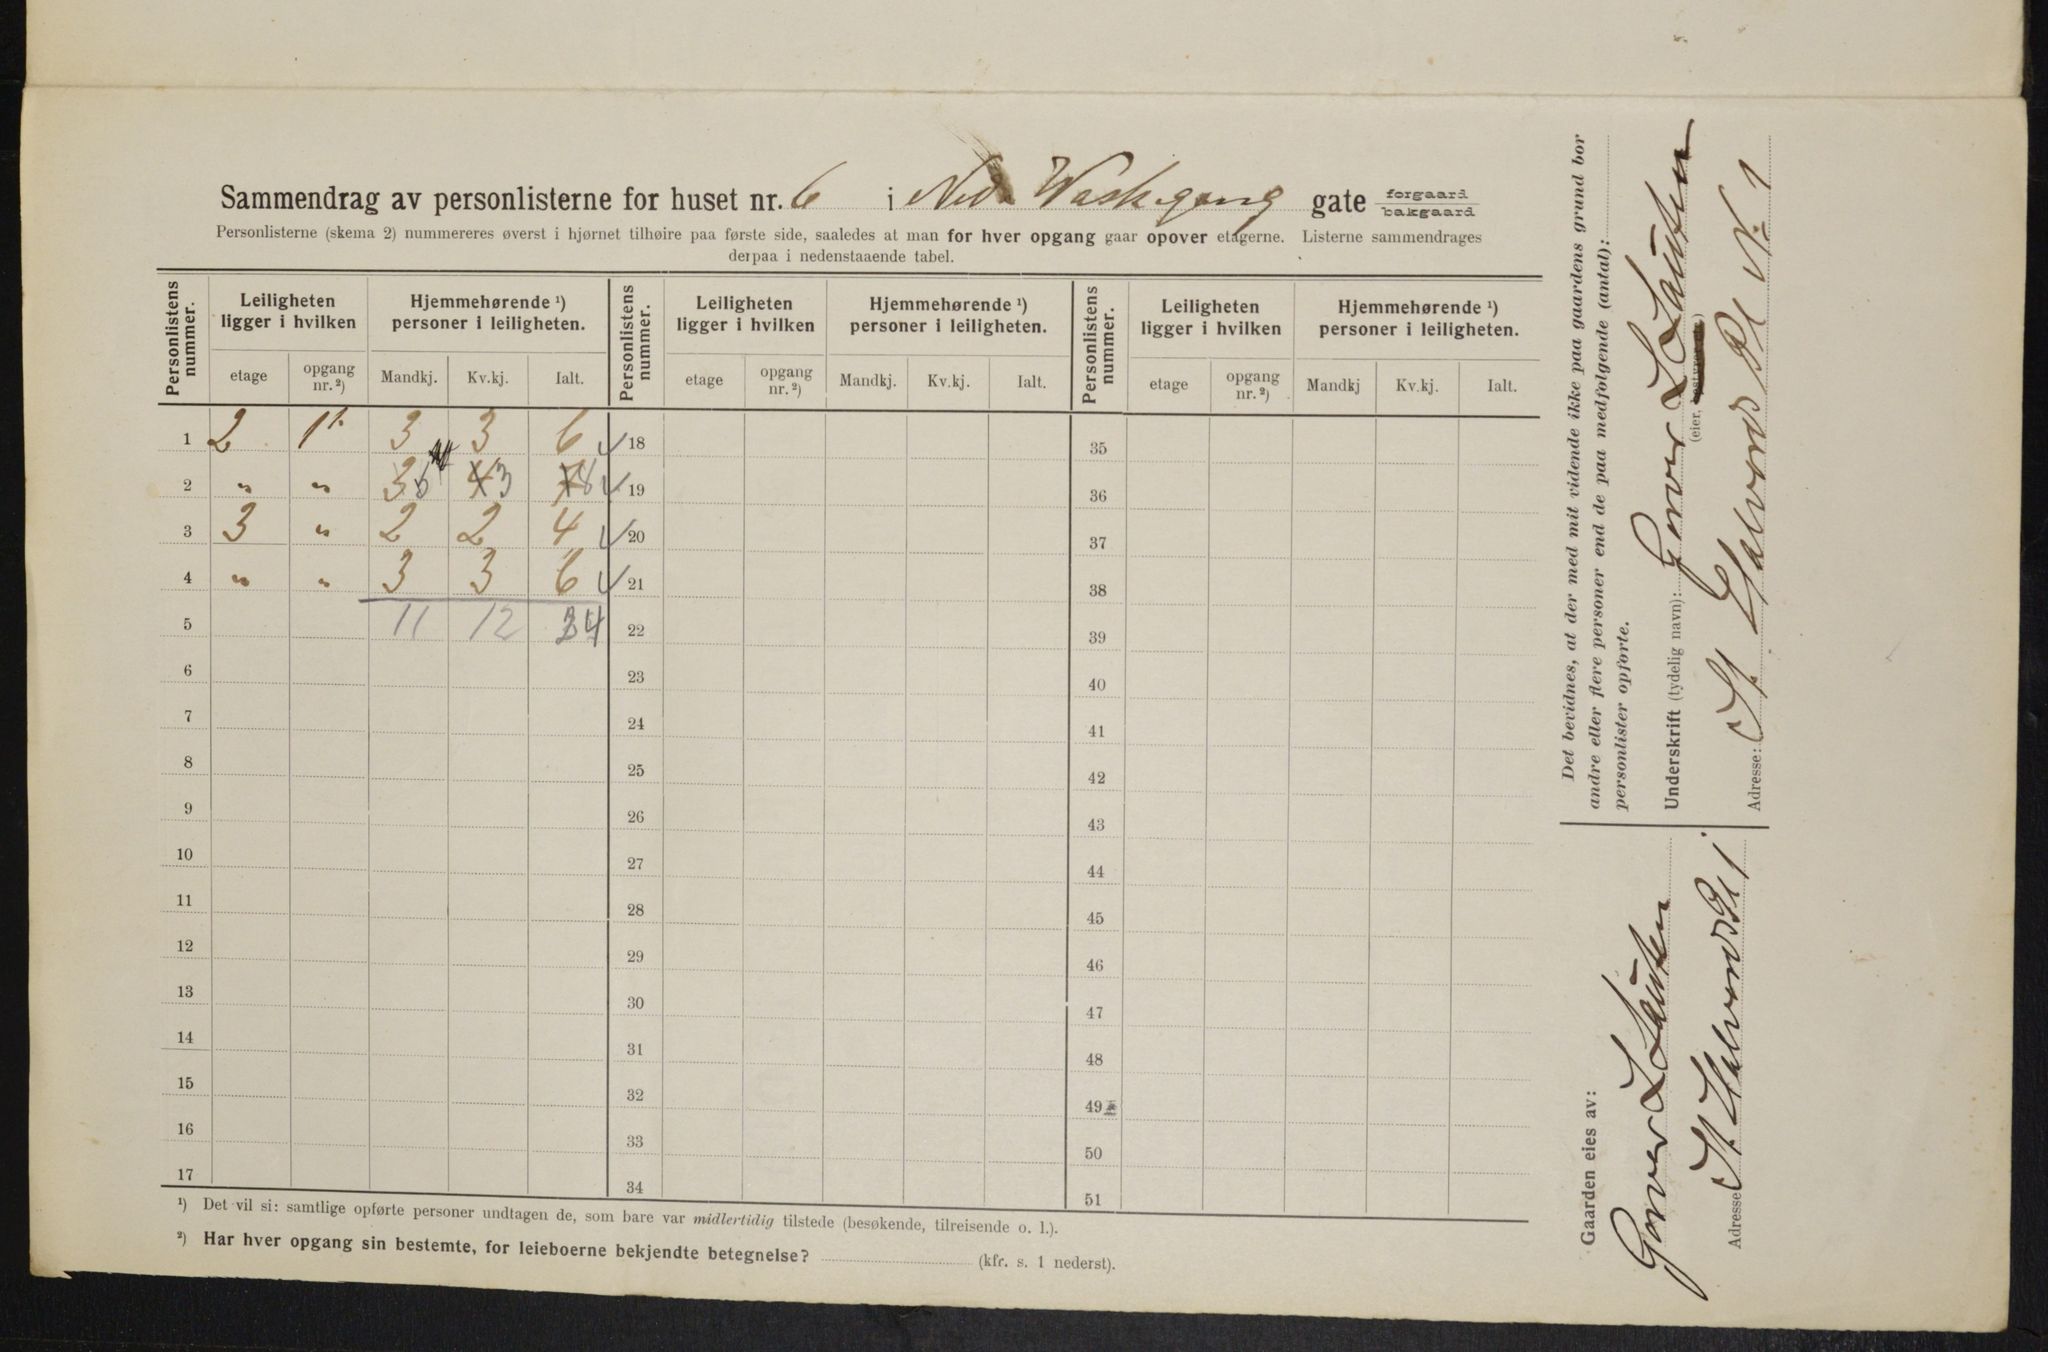 Sammendrag av personlisterne for huset nr. 6 i Ned. Vaskegang gate forgaard bakgaard
Personlisterne (skema 2) nummereres øverst i hjørnet tilhøire paa første side, saaledes at man for hver opgang gaar opover etagerne. Listerne sammendrages
derpaa i nedenstaaende tabel.
Personlistens nummer. Leiligheten ligger i hvilken Hjemmehørende ¹) personer i leiligheten. Personlistens nummer. Leiligheten ligger i hvilken Hjemmehørende ¹) personer i leiligheten. Personlistens nummer. Leiligheten ligger i hvilken Hjemmehørende ¹) personer i leiligheten.
etage opgang nr. ²) Mandkj. Kv.kj. Ialt. etage opgang nr. ²) Mandkj. Kv.kj. Ialt. etage opgang nr. ²) Mandkj Kv.kj. Ialt.
1 2 1 3 3 6 ✓ 18 35
2 " " 3 5 4 3 7 8 ✓ 19 36
3 3 " 2 2 4 ✓ 20 37
4 " " 3 3 6 ✓ 21 38
5 11 12 24 22 39
6 23 40
7 24 41
8 25 42
9 26 43
10 27 44
11 28 45
12 29 46
13 30 47
14 31 48
15 32 49
16 33 50
17 34 51
¹) Det vil si: samtlige opførte personer undtagen de, som bare var midlertidig tilstede (besøkende, tilreisende o. l.).
²) Har hver opgang sin bestemte, for leieboerne bekjendte betegnelse? (kfr. s. 1 nederst).
Det bevidnes, at der med mit vidende ikke paa gaardens grund bor
andre eller flere personer end de paa medfølgende (antal):
personlister opførte.
Underskrift (tydelig navn):
(eier, bestyrer)
Adresse: St Halvards Pl No 1
Gaarden eies av:
Adresse St Halvards Pl 1